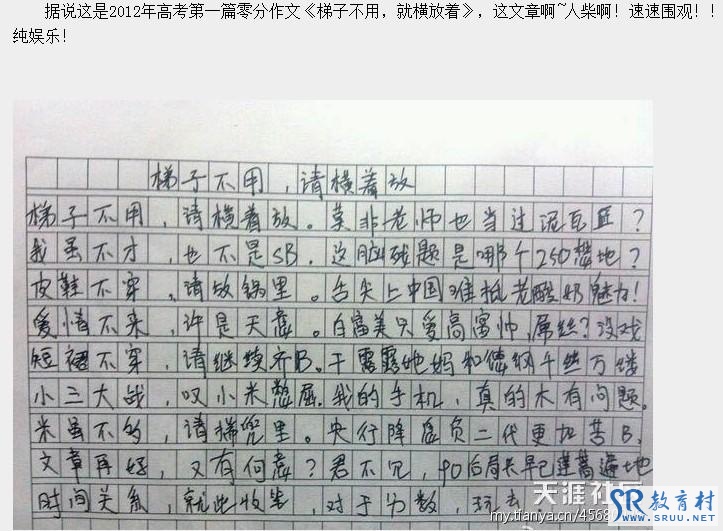 据说这是2012年高考第一篇零分作文《梯子不用，就横放着》，这文章啊~人柴啊！速速围观！！
纯娱乐！
梯子不用，请横着放
梯子不用，请横着放。莫非老师也当过泥瓦匠？
我虽不才，也不是SB．这脑残题是哪个250想地？
皮鞋不穿，请放锅里。舌尖上中国难抵老酸奶魅力！
爱情不来，许是天意。白富美只爱高富帅，屌丝？没戏
短裙不穿，请继续齐B。干露露她妈和德纲千丝万缕
小三大战，叹小米憋屈．我的手机，真的木有问题。
米虽不多，请揣兜里。央行降息负二代更加苦B．
文章再好，又有何意？君不见，90后局长早已遍地
时间关系，就此收笔，对于分数，
天涯社区
my.tianya.cn/4568
SR教育村
WWW.SRUU.NET